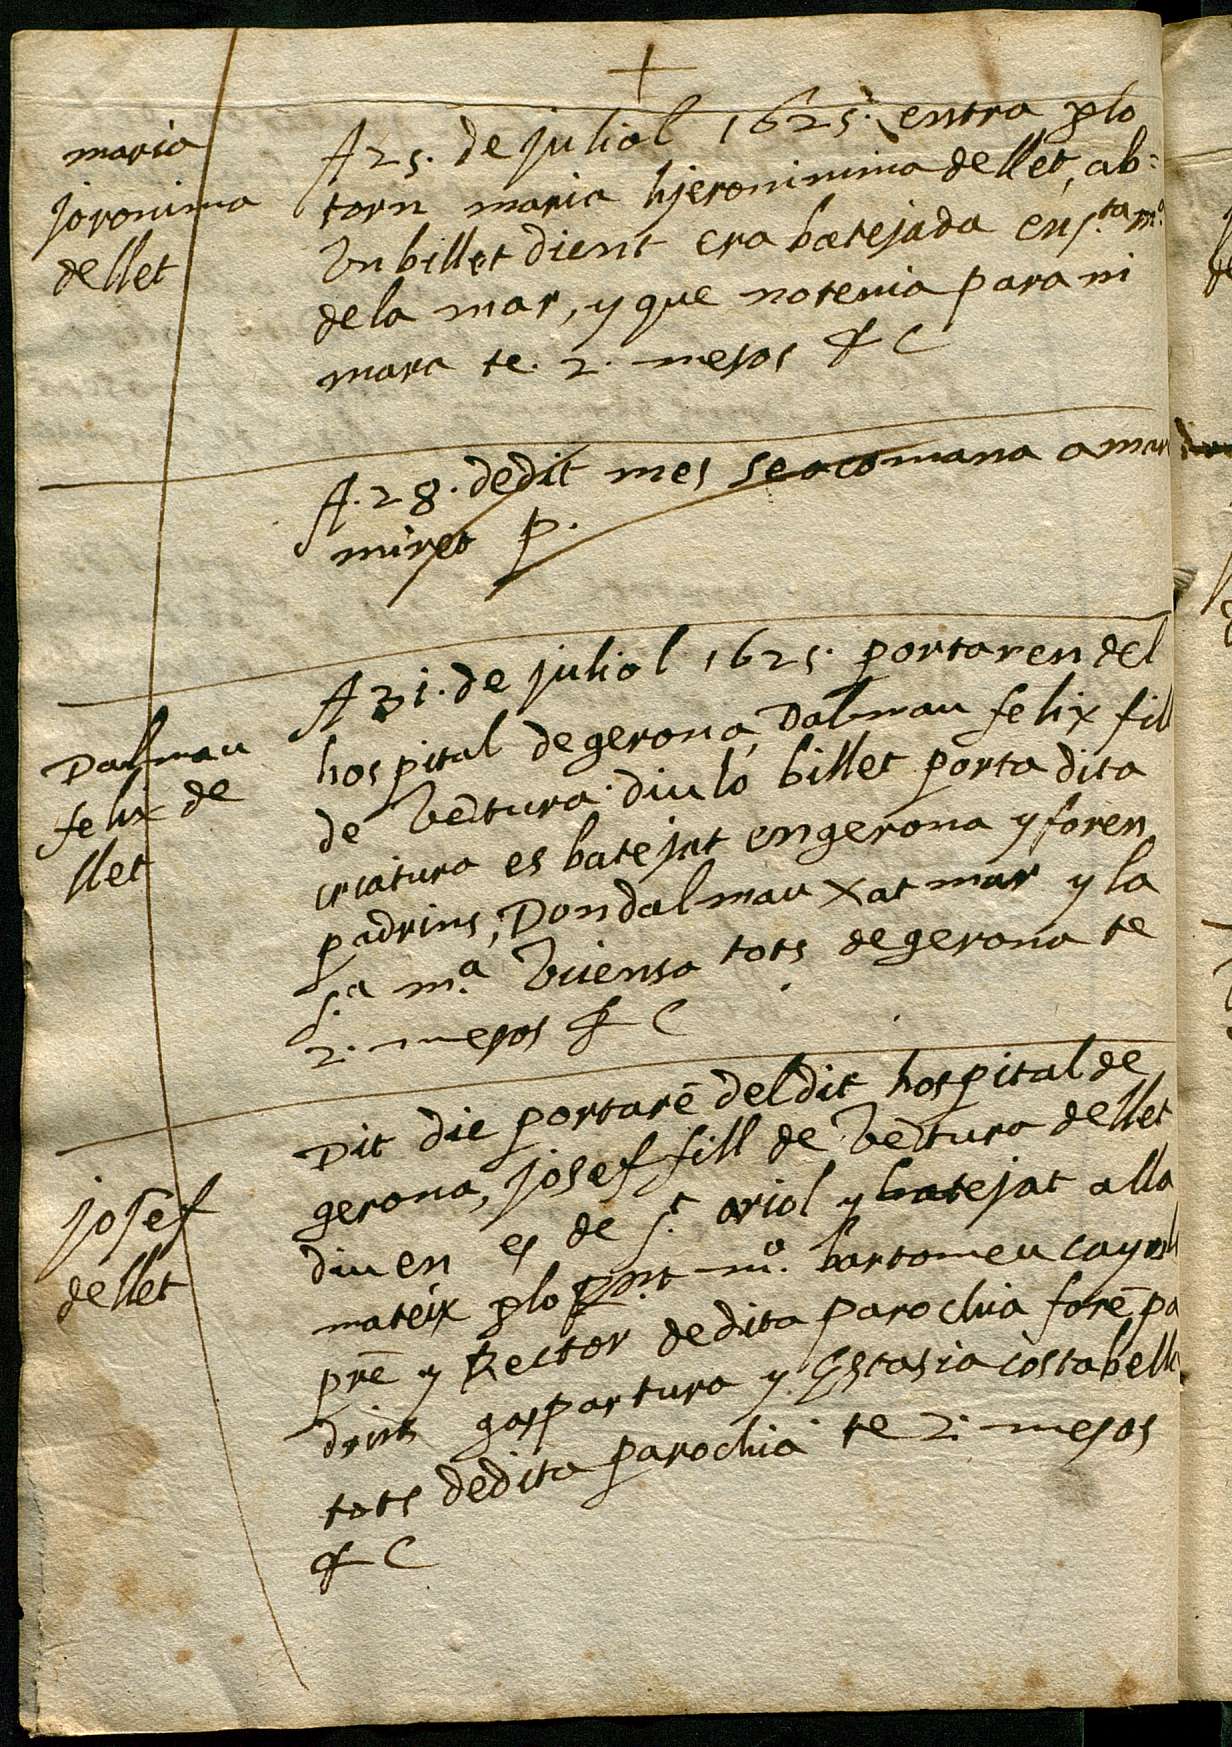 maria
joronima
de llet
A 25. de juliol 1625. entra plo
torn maria hjeronimina de llet, ab
Un billet dient era batejada en s.ta m.a
de la mar, y que no tenia para ni
mara te. 2. mesos & C
A. 28. de dit mes se acomana a mar
miret p.
Dalmau
felix de
llet
A 31. de juliol 1625. portaren del
hospital de gerona, Dalmau felix fill
de Vētura. diu lo billet porta dita
criatura es batejat en gerona y foren
padrins, Don dalmau xatmar y la
s.a m.a tots de gerona te
2. mesos & C
josef
de llet
Dit die portarē del dit hospital de
gerona, josef fill de Vētura de llet
diuen es de s.t oriol y batejat alla
mateix plo pnt m.o bartomeu
prē y Rector de dita parochia forē pa
drins gaspar tura y Estasia costabella
tots de dita parochia te 2. mesos
& C